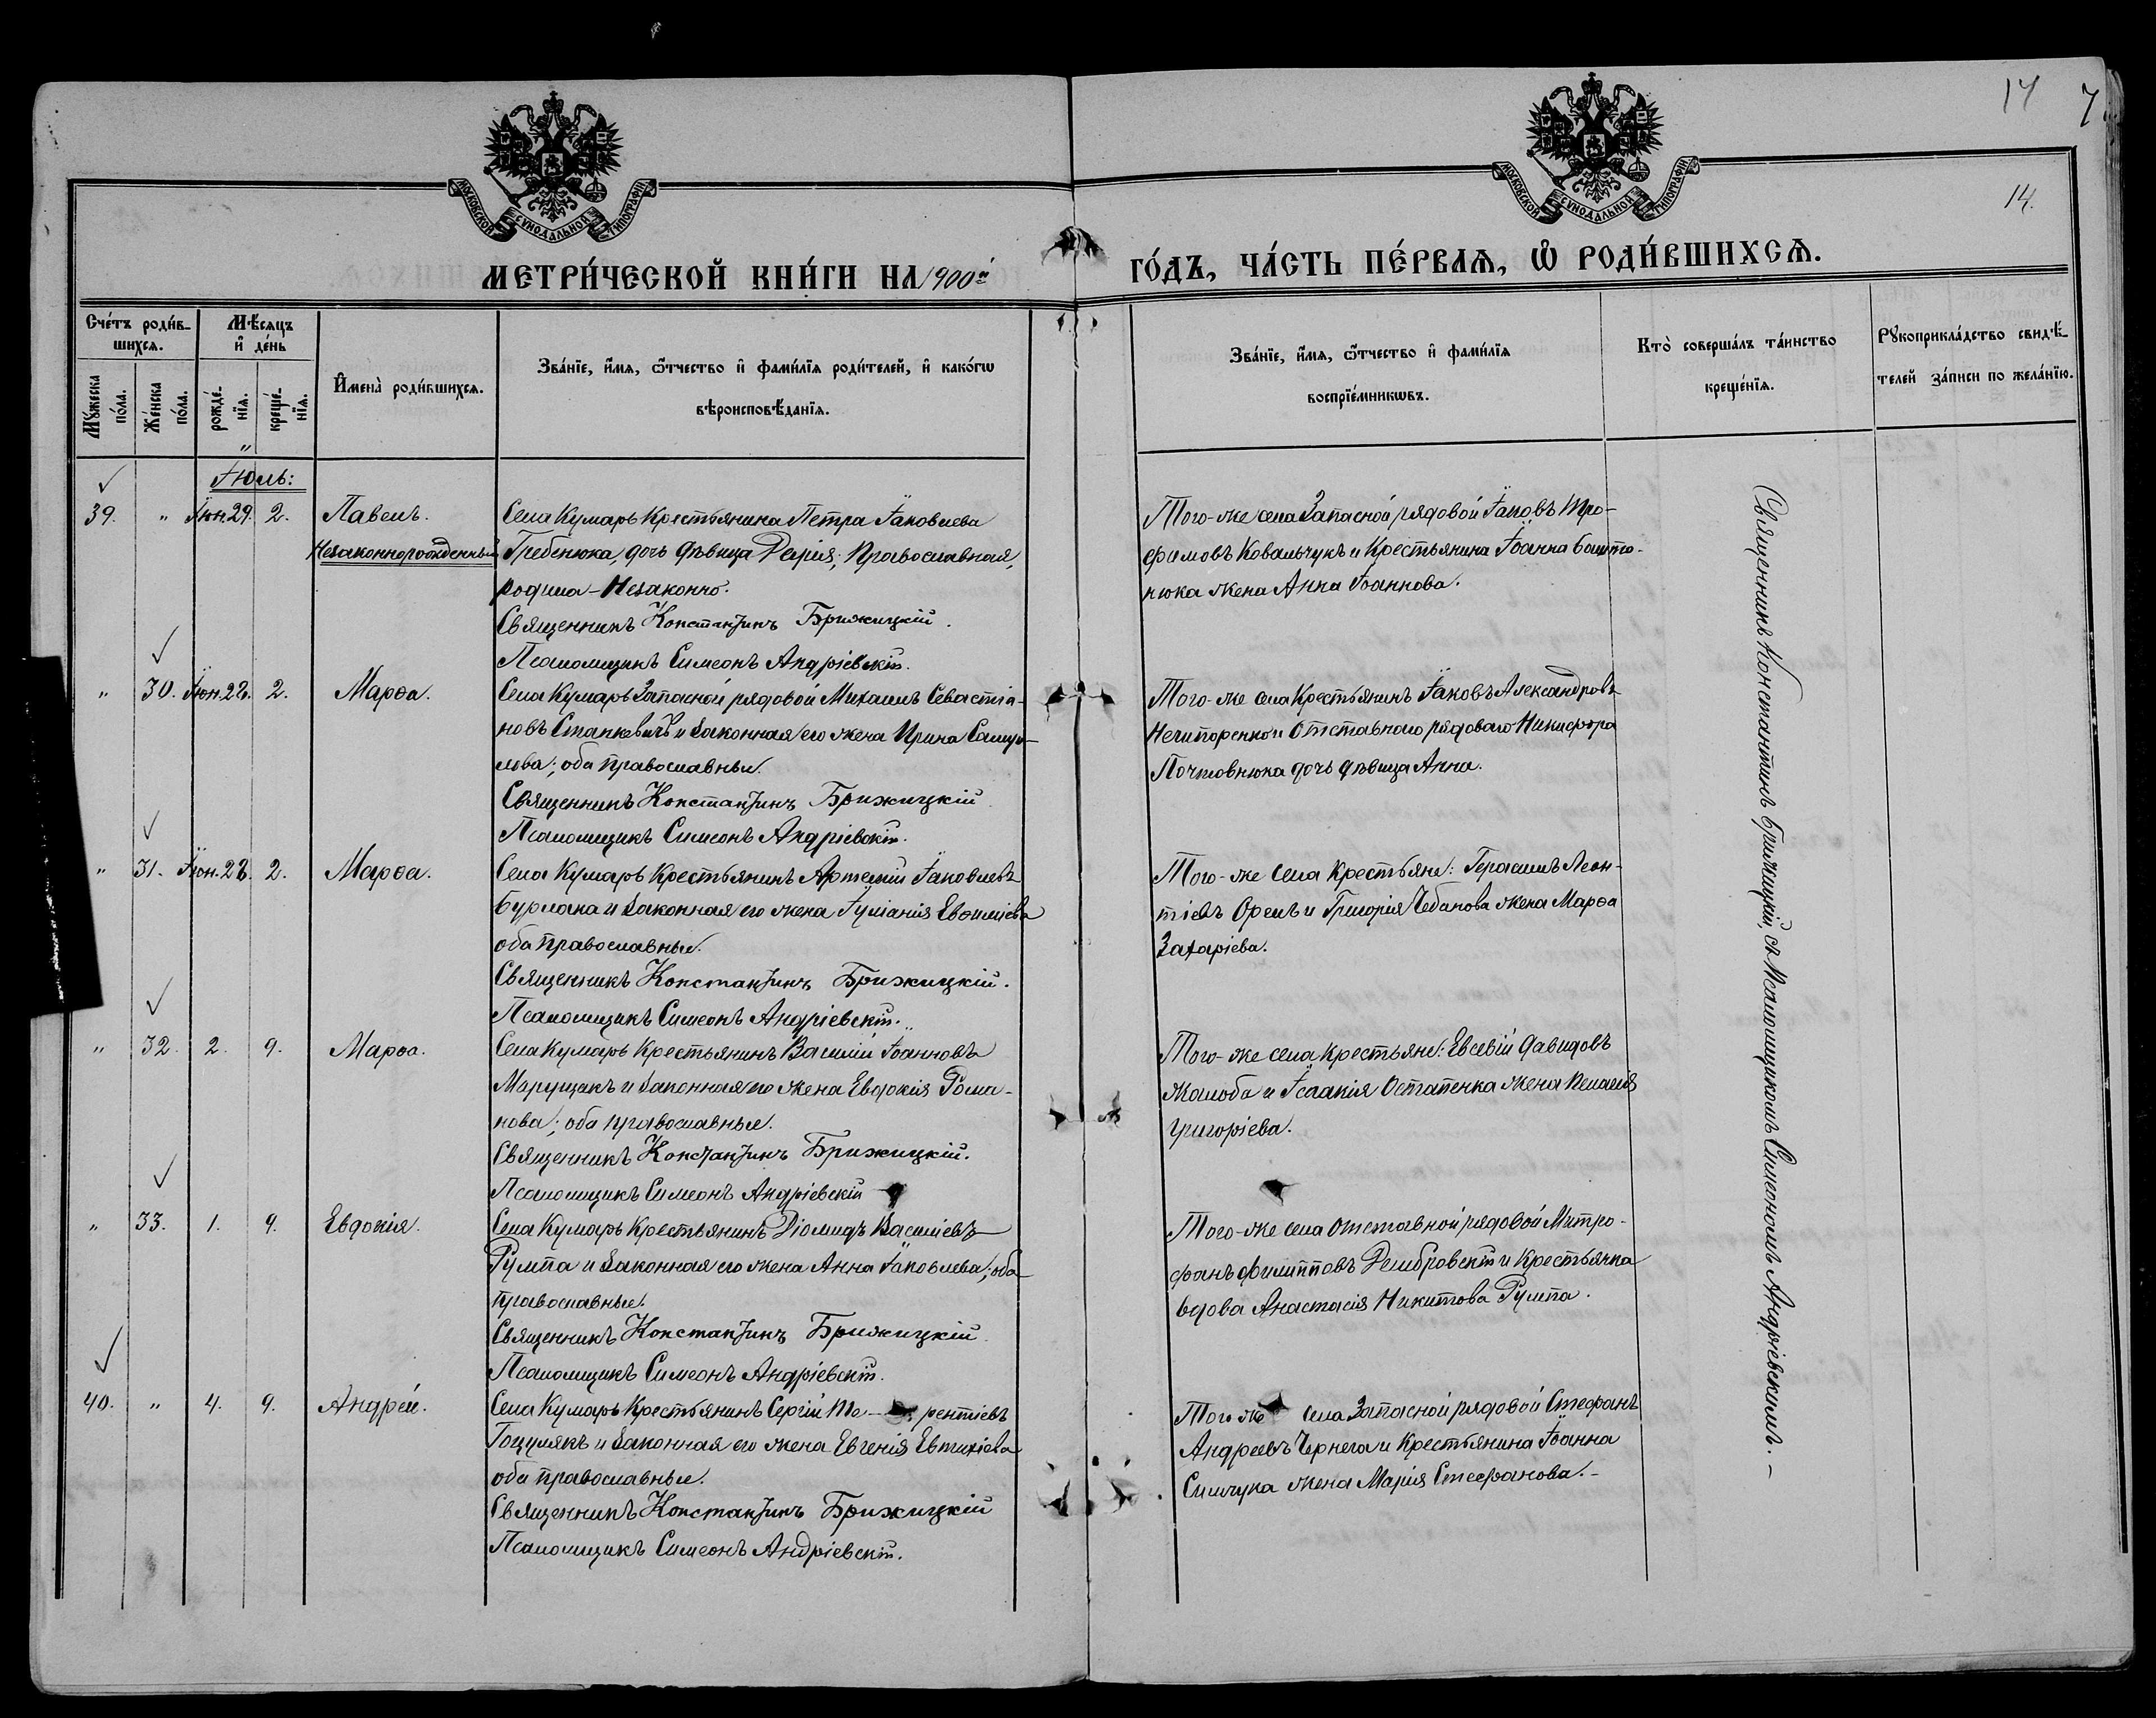 14 7
МОСКОВСКОЙ СѴНОДАЛЬНОЙ ТИПОГРАФІИ
МОСКОВСКОЙ СѴНОДАЛЬНОЙ ТИПОГРАФІИ
14.
МЕТРИ́ЧЕСКОЙ КНИ́ГИ НА 1900й ГО́ДЪ, ЧА́СТЬ ПЕ́РВАѦ, Ѡ҆ РОДИ́ВШИХСѦ.
Сче́тъ роди́в-
шихсѧ.
Мꙋжеска по́ла.
Же́нска по́ла.
Мѣ́сѧцъ
и҆ де́нь
рожде́-
нїѧ.
креще́-
нїѧ.
И҆мена̀ роди́вшихсѧ.
Зва́нїе, и҆́мѧ, ѻ҆́тчество и҆ фами́лїѧ роди́телей, и҆ како́гѡ
вѣроисповѣ́данїѧ.
Зва́нїе, и҆́мѧ, ѻ҆́тчество и҆ фами́лїѧ
воспрїе́мникѡвъ.
Кто̀ соверша́лъ та́инство
креще́нїѧ.
Рꙋкоприкла́дство свидѣ́-
телей за́писи по жела́нїю.
Іюль:
39. " Іюн. 29. 2. Павелъ.
Незаконнорожденный
Села Кумаръ Крестьянина Петра Іаковлева
Гребенюка, дочь дѣвица Дарія; Православная,
родила - Незаконно.
Священникъ Константинъ Брижицкій.
Псаломщикъ Симеонъ Андріевскій.
Того-же села Запасной рядовой Іаковъ Тро-
фимовъ Ковальчукъ и Крестьянина Іоанна Башто-
нюка жена Анна Іоаннова.
Священникъ Константинъ Брижицкій, съ Псаломщикомъ Симеономъ Андріевскимъ. -
" 30. Іюн. 28. 2. Марѳа.
Села Кумаръ Запасной рядовой Михаилъ Севастіа-
новъ Станкевичъ и законная его жена Ирина Саму-
лова; оба православные.
Священникъ Константинъ Брижицкій
Псаломщикъ Симеонъ Андріевскій.
Того-же села Крестьянинъ Іаковъ Александровъ
Нечипоренко и Отставного рядового Никифора
Почтовнюка дочь дѣвица Анна.
" 31. Іюн. 28. 2. Марѳа.
Села Кумаръ Крестьянинъ Артемій Іаковлевъ
Бурлака и законная его жена Іуліанія Евѳиміева
оба православные.
Священникъ Константинъ Брижицкій.
Псаломщикъ Симеонъ Андріевскій.
Того-же села Крестьяне: Герасимъ Леон-
тіевъ Орелъ и Григорія Чебанова жена Марѳа
Захаріева.
" 32. 2. 9. Марѳа.
Села Кумаръ Крестьянинъ Василій Іоанновъ
Марущакъ и законная его жена Евдокія Рома-
нова; оба православные.
Священникъ Константинъ Брижицкій.
Псаломщикъ Симеонъ Андріевскій
Того-же села Крестьяне: Евсевій Давидовъ
Жалоба и Ісаакія Остапенка жена Пелагія
Григоріева.
" 33. 1. 9. Евдокія.
Села Кумаръ Крестьянинъ Діомидъ Василіевъ
Румпа и законная его жена Анна Іаковлева; оба
православные.
Священникъ Константинъ Брижицкій
Псаломщикъ Симеонъ Андріевскій.
Того-же села Отставной рядовой Митро-
фанъ Филипповъ Дембровскій и Крестьянка
вдова Анастасія Никитова Румпа.
40. " 4. 9. Андрей.
Села Кумаръ Крестьянинъ Сергій Те- рентіевъ
Гоцулякъ и законная его жена Евгенія Евтихіева
оба православные.
Священникъ Константинъ Брижицкій
Псаломщикъ Симеонъ Андріевскій.
Того же села Запасной рядовой Стефанъ
Андреевъ Чернега и Крестьянина Іоанна
Симчука жена Марія Стефанова. -